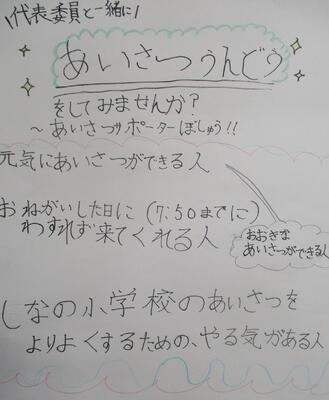 \代表委員と一緒に/
あいさつうんどう
をしてみませんか?
～あいさつサポーターぼしゅう!!
元気にあいさつができる人
おねがいした日に(7:50までに)
わすれず来てくれる人
おおきな
あいさつができる人
しなの小学校のあいさつを
よりよくするための、やる気がある人